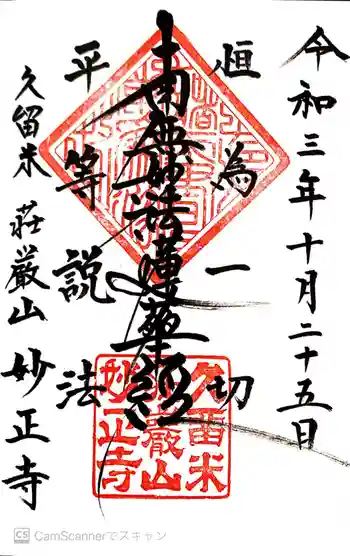 令和三年十月二十五日
恒為一切
南無妙法蓮華経
平等説法
久留米 荘厳山 妙正寺
久留米
荘厳山
妙正寺
CS CamScannerでスキャン